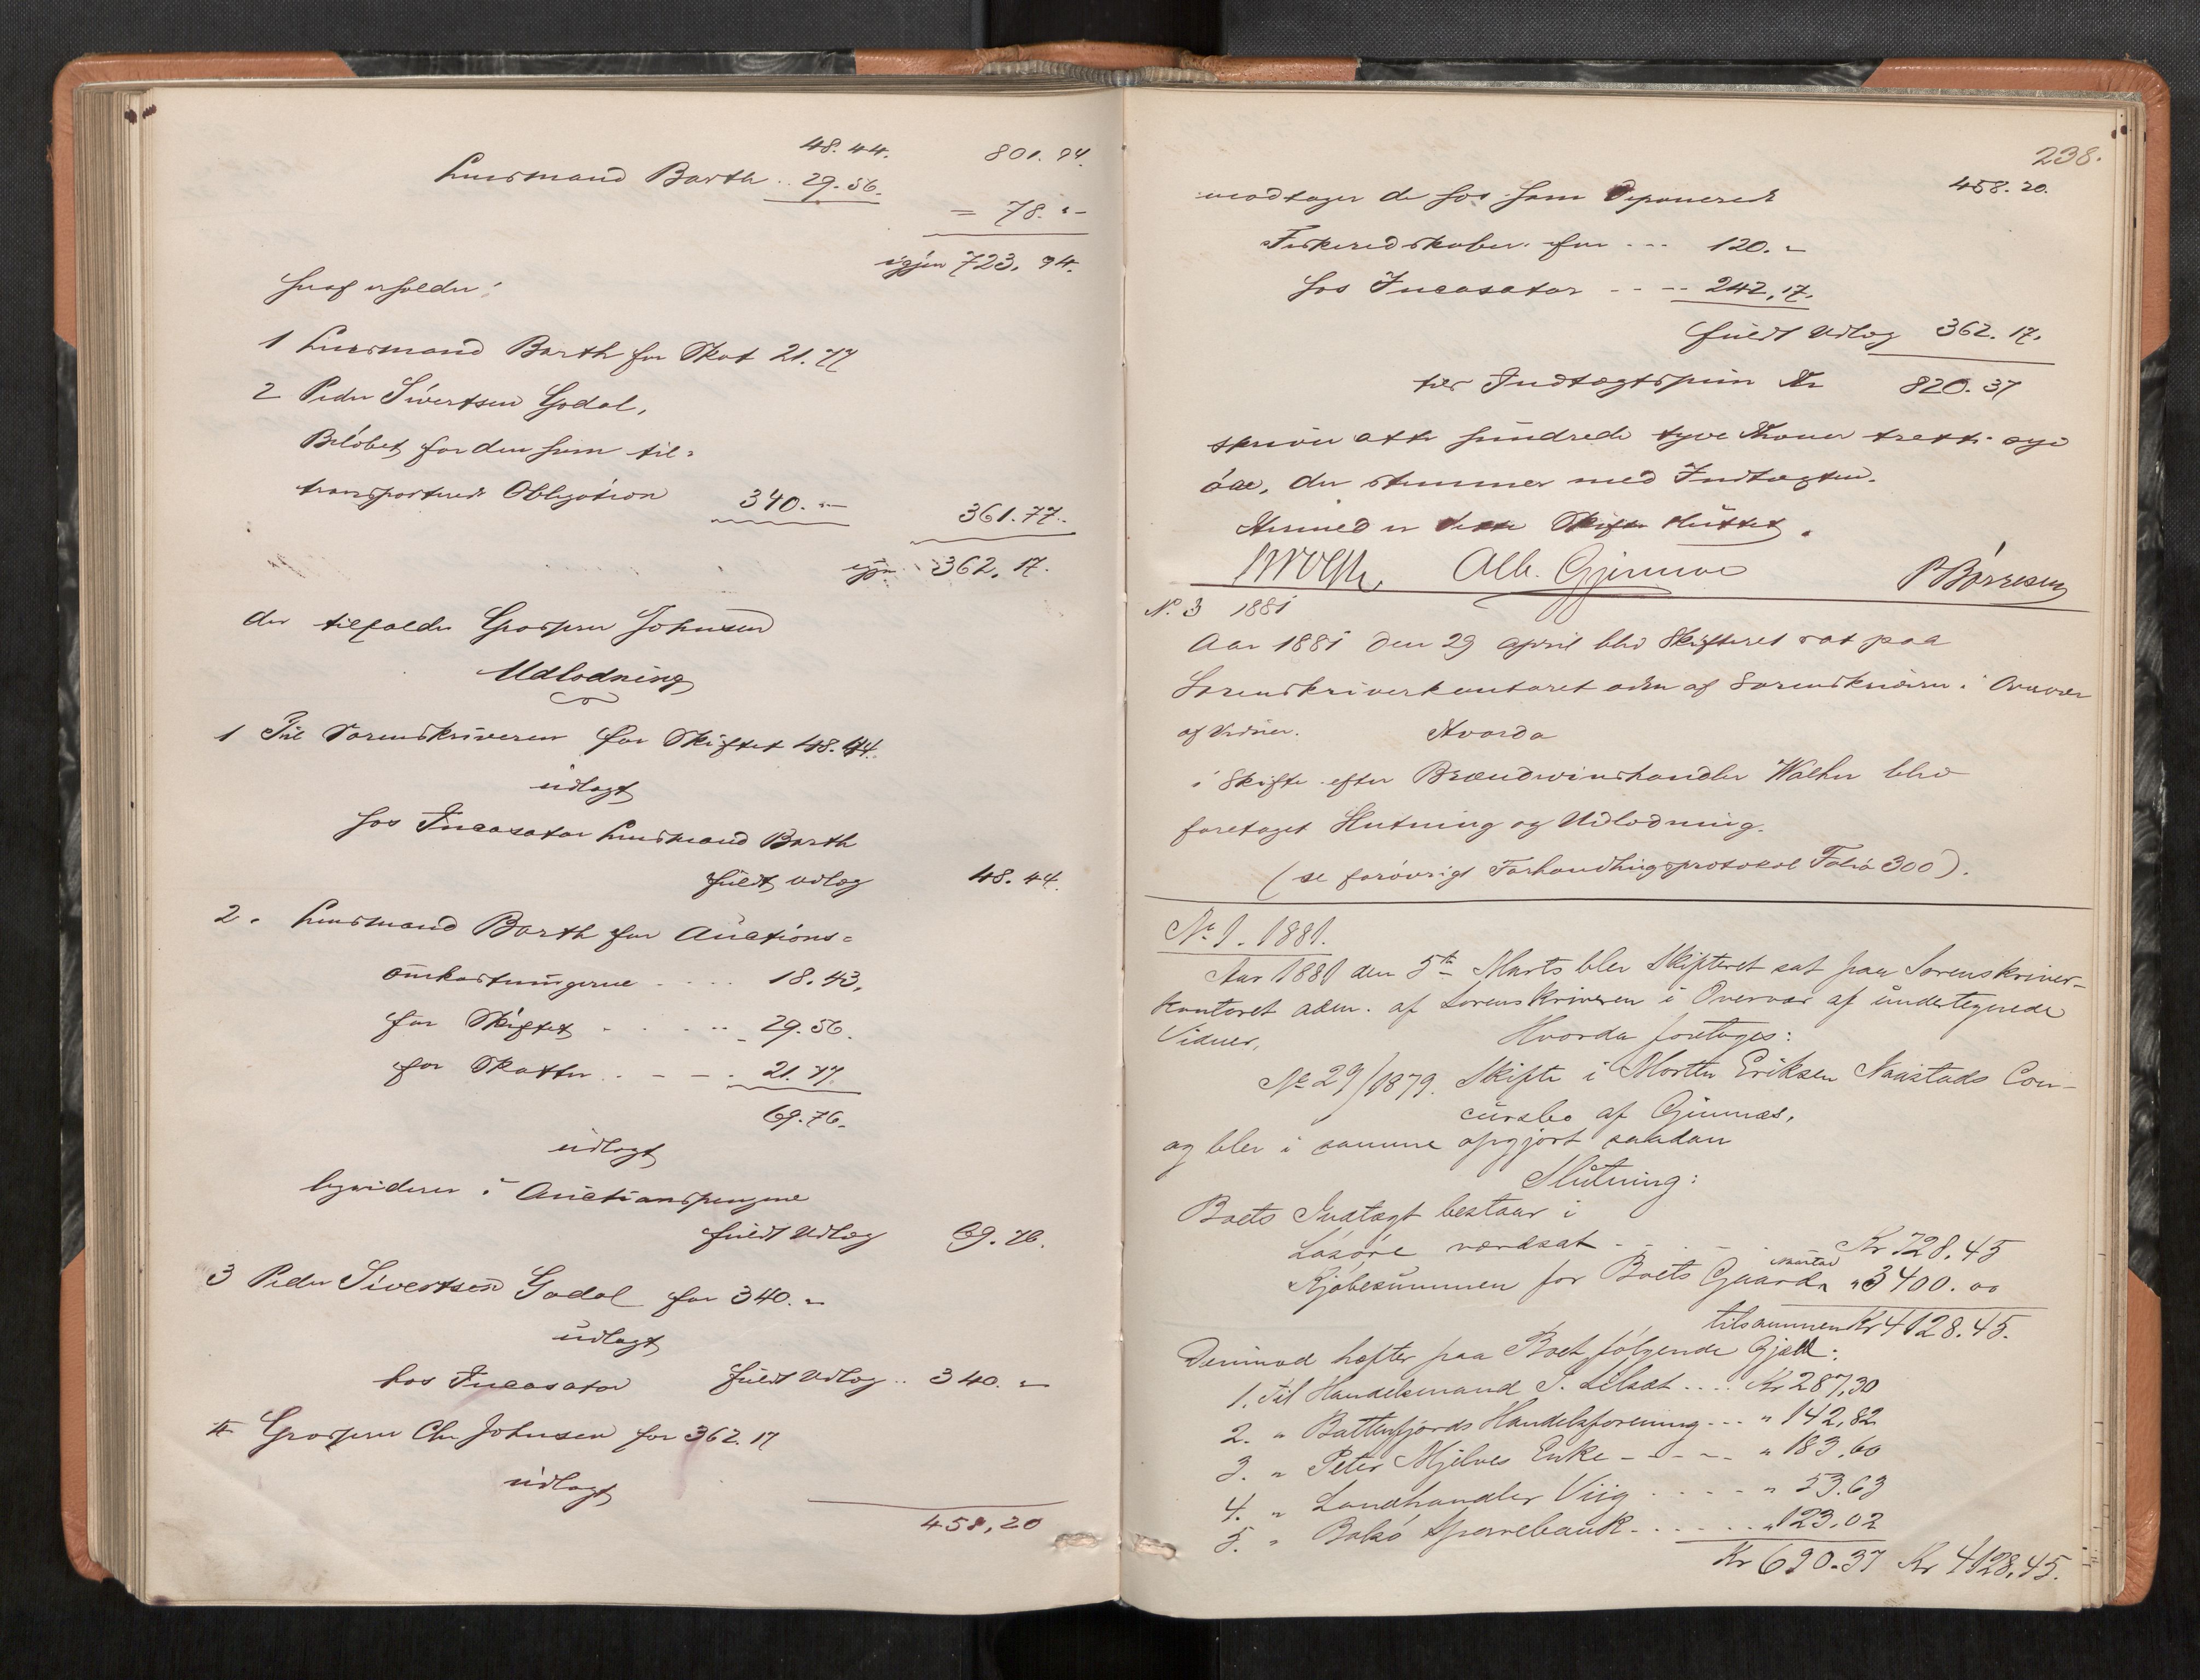 48.44. 801.94.
Lensmand Barth .. 29.56.
= 78. "
igjen 723.94.
heraf erholder:
1 Lensmand Barth for Skat 21.77
2 Peder Sivertsen Godal,
Beløbet for den ham til=
transporterede Obligation 340. " 361.77.
igjen 362.17.
der tilfalder Grosserer Johnsen
Udlodning
1 Til Sorenskriveren for Skiftet 48.44.
udlagt
hos Incasator Lensmand Barth
fuldt udlæg 48.44.
2. Lensmand Barth for Auctions=
omkostningerne .... 18.43,
for Skiftet . . . .. 29.56.
for Skatter . . - - . 21.77.
69.76.
udlagt
liqviderer i Auctionspengene
fuldt Udlæg 69.76.
3 Peder Sivertsen Godal for 340. "
udlagt
hos Incasator fuldt Udlæg .. 340. "
4 Grosserer Chr Johnsen for 362.17
udlagt
458,20
238.
458.20.
modtager de hos ham deponerede
Fiskeredskaber for --- 120. "
hos Incasator - - -- 242,17.
fuldt Udlæg 362.17.
til Indtægtspenn Kr 820.37
skriver otte hundrede tyve Kroner tretti syv
øre, der stemmer med Indtægten.
Hermed er dette Skifte sluttet.
Alb. Gjimnæs P Børresen
N. 3 1881
Aar 1881 den 29 april blev Skifteret sat paa
Sorenskriverkontoret adm af Sorenskriveren i Overvær
af Vidner. Hvorda
i Skifte efter Brændevinshandler Walher blev
foretaget Slutning og Udlodning.
(se forøvrigt Forhandlingsprotokol Folio 300).
No 1. 1881.
Aar 1881 den 5th Marts blev Skifteret sat paa Sorenskriver-
kontoret adm. af Sorenskriveren i Overvær af undertegnede
Vidner, Hvorda foretoges:
No 29/1879. Skifte i Morten Eriksen Naastads Con-
cursbo af Gimnæs,
og blev i samme opgjort saadan
Slutning:
Boets Indtægt bestaar i
Løsøre værdsat - . - . Kr 728.45
Kjøbesummen for Boets Gaard Naastad " 3400.00
tilsammen Kr 4128.45.
Derimod hæfter paa Boet følgende Gjæld:
1. Til Handelsmand S. Lilsæt .... Kr 287,30
2. " Battenfjords Handelsforening --- " 142,82
3. " Peter Mjelves Enke - - - - " 183,60
4. " Landhandler Viig . . . . - " 53.63
5. " Bolsø Sparebank - . . . . .. " 123,02
Kr 690.37 Kr 4128,45.